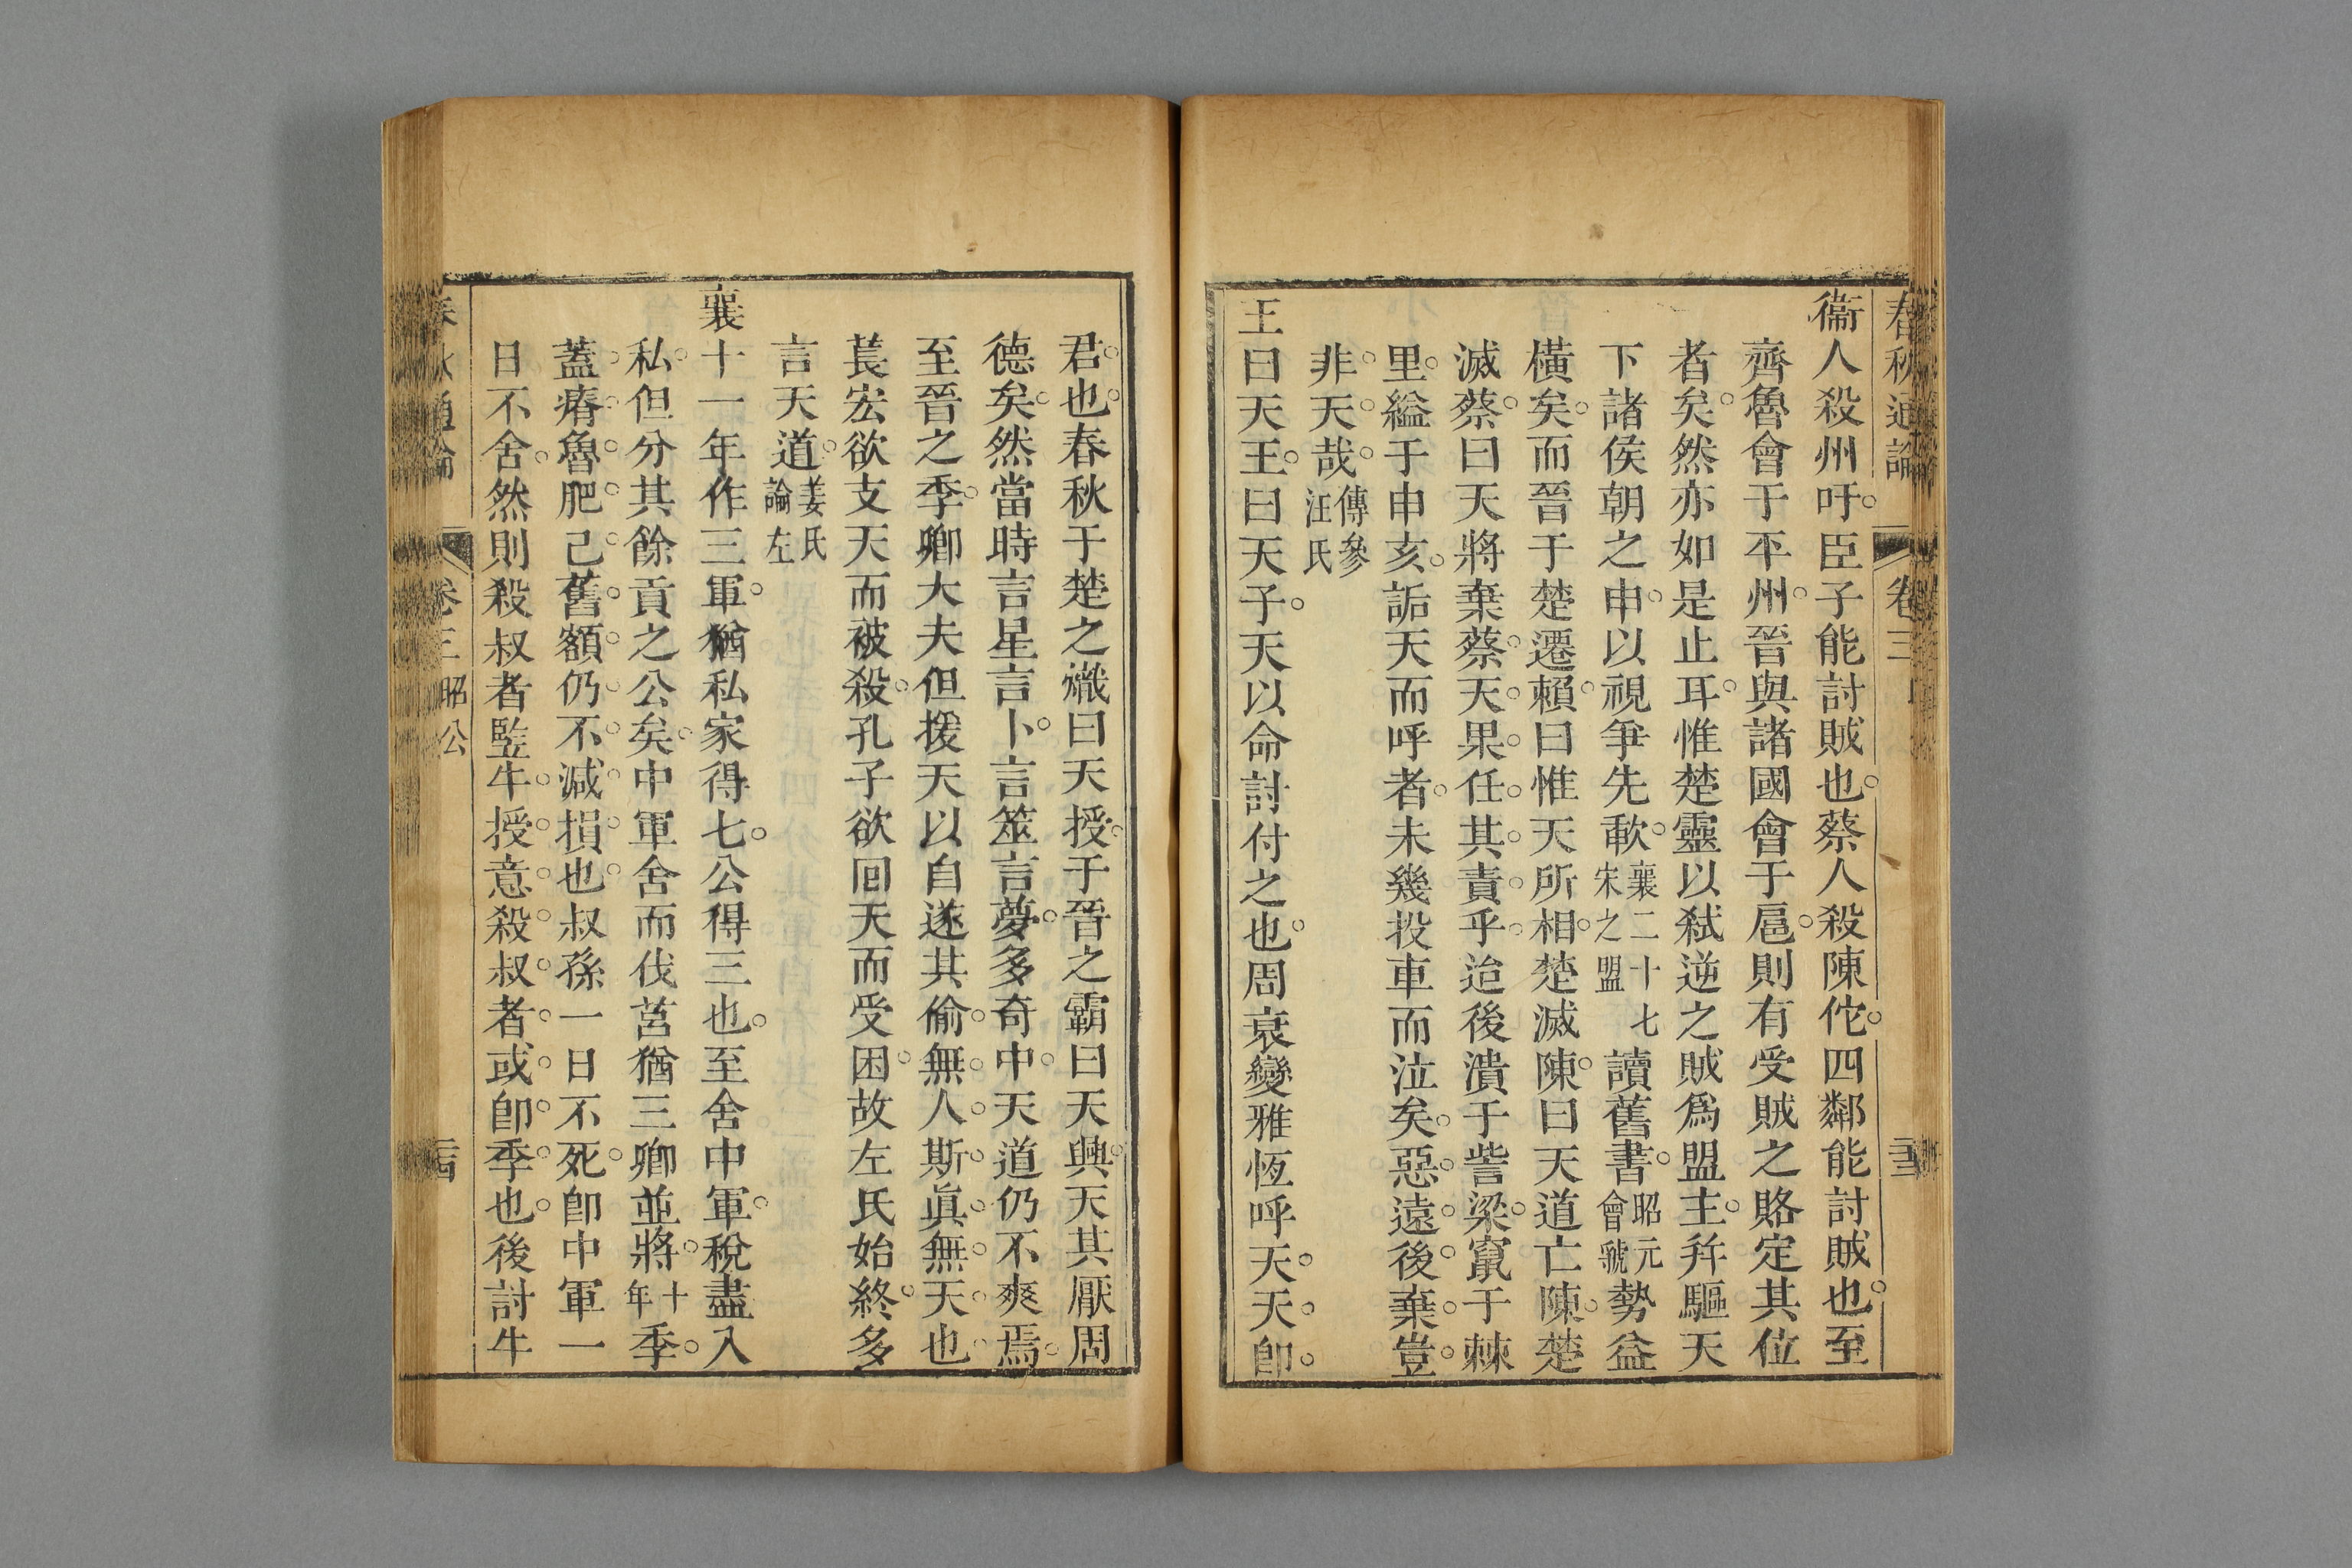 春秋通論 卷三
衞人殺州吁臣子能討賊也蔡人殺陳佗四鄰能討賊也至
齊魯會于平州晉與諸國會于扈則有受賊之賂定其位
者矣然亦如是止耳惟楚靈以弒逆之賊爲盟主幷驅天
下諸侯朝之申以視爭先歃襄二十七宋之盟讀舊書昭元會虢勢益
橫矣而晉于楚遷賴曰惟天所相楚滅陳曰天道亡陳楚
滅蔡曰天將棄蔡天果任其責乎迨後潰于訾梁竄于棘
里縊于申亥詬天而呼者未幾投車而泣矣惡遠後棄豈
非天哉傳參汪氏
王曰天王曰天子天以命討付之也周衰變雅恆呼天天卽
君也春秋于楚之熾曰天授于晉之霸曰天興天其厭周
德矣然當時言星言卜言筮言夢多奇中天道仍不爽焉
至晉之季卿大夫但援天以自遂其偷無人斯眞無天也
萇宏欲支天而被殺孔子欲囘天而受困故左氏始終多
言天道姜氏論左
襄十一年作三軍猶私家得七公得三也至舍中軍稅盡入
私但分其餘貢之公矣中軍舍而伐莒猶三卿並將十年季
蓋瘠魯肥己舊額仍不減損也叔孫一日不死卽中軍一
日不舍然則殺叔者豎牛授意殺叔者或卽季也後討牛
春秋通論 卷三昭公